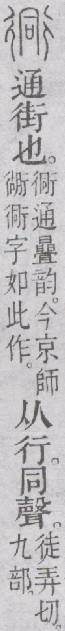 衕
通街也。
衕通曡韵。今京師
衚衕字如此作。
从行。同聲。
徒弄切。
九部。